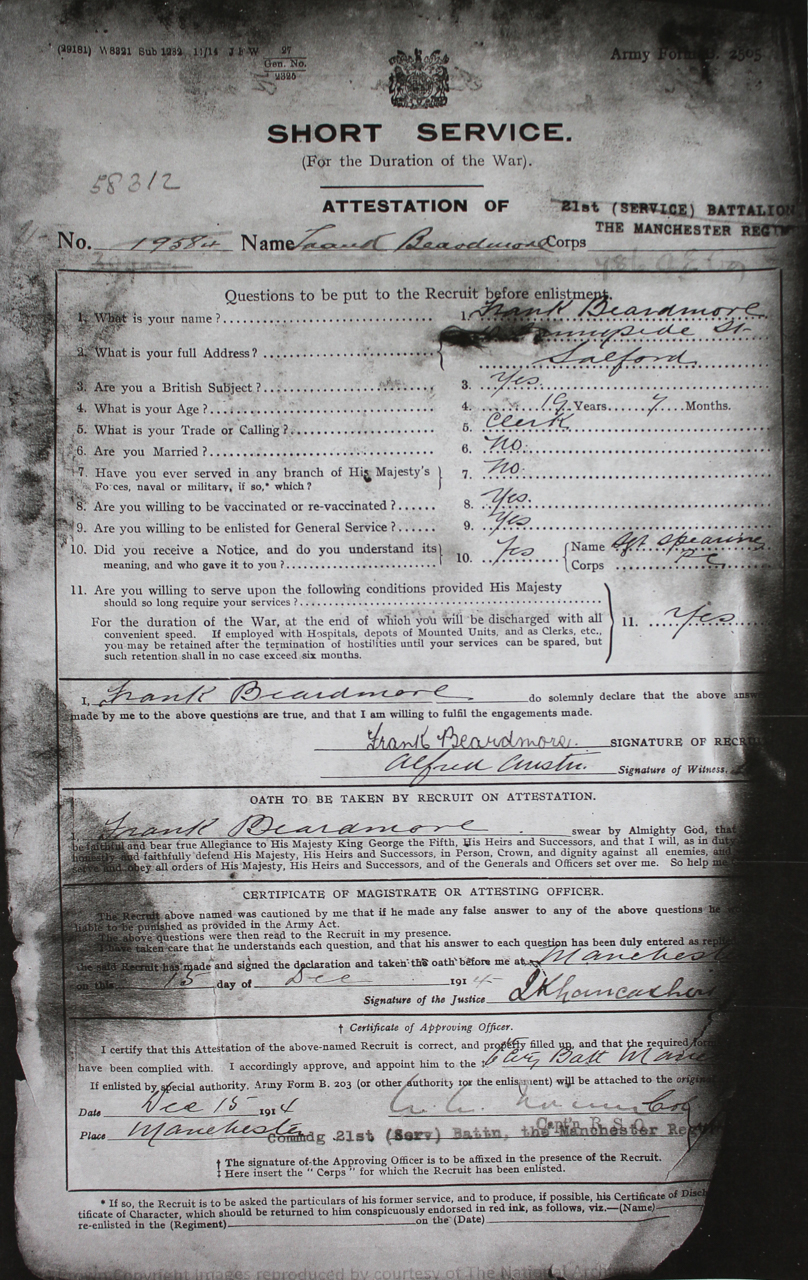 (29181) W8321 Sub 1292 11/14 J P W 27
Gen. No.
2325
Army Form B. 2505
SHORT SERVICE.
(For the Duration of the War).
58312
ATTESTATION OF 21st (SERVICE) BATTALION
THE MANCHESTER REGT
No. 19584 Name Frank Beardmore Corps
Questions to be put to the Recruit before enlistment.
1. What is your name? 1. Frank Beardmore
2. What is your full Address? Sunnyside St
Salford
3. Are you a British Subject? 3. Yes.
4. What is your Age? 4. 19 Years 7 Months.
5. What is your Trade or Calling? 5. Clerk
6. Are you Married? 6. No.
7. Have you ever served in any branch of His Majesty's 7. No.
Forces, naval or military, if so,* which?
8. Are you willing to be vaccinated or re-vaccinated? 8. Yes.
9. Are you willing to be enlisted for General Service? 9. Yes
10. Did you receive a Notice, and do you understand its 10. Yes Name Sgt
meaning, and who gave it to you? Corps
11. Are you willing to serve upon the following conditions provided His Majesty
should so long require your services?
For the duration of the War, at the end of which you will be discharged with all 11. Yes
convenient speed. If employed with Hospitals, depots of Mounted Units, and as Clerks, etc.,
you may be retained after the termination of hostilities until your services can be spared, but
such retention shall in no case exceed six months.
I, Frank Beardmore do solemnly declare that the above answ
made by me to the above questions are true, and that I am willing to fulfil the engagements made.
Frank Beardmore. SIGNATURE OF RECRU
Alfred Austin Signature of Witness.
OATH TO BE TAKEN BY RECRUIT ON ATTESTATION.
I, Frank Beardmore swear by Almighty God, that
be faithful and bear true Allegiance to His Majesty King George the Fifth, His Heirs and Successors, and that I will, as in duty
honestly and faithfully defend His Majesty, His Heirs and Successors, in Person, Crown, and dignity against all enemies, and
serve and obey all orders of His Majesty, His Heirs and Successors, and of the Generals and Officers set over me. So help me
CERTIFICATE OF MAGISTRATE OR ATTESTING OFFICER.
The Recruit above named was cautioned by me that if he made any false answer to any of the above questions he
liable to be punished as provided in the Army Act.
The above questions were then read to the Recruit in my presence.
I have taken care that he understands each question, and that his answer to each question has been duly entered as replied
the said Recruit has made and signed the declaration and taken the oath before me at Manchest
on this 15 day of Dec 1914
Signature of the Justice
† Certificate of Approving Officer.
I certify that this Attestation of the above-named Recruit is correct, and properly filled up, and that the required for
have been complied with. I accordingly approve, and appoint him to the ‡ City Batt Manc
If enlisted by special authority, Army Form B. 203 (or other authority for the enlistment) will be attached to the origin
Date Dec 15 1914 Col
Capt'n R. S. O.
Place Manchester Commdg 21st (Serv) Battn, the Manchester Regt
† The signature of the Approving Officer is to be affixed in the presence of the Recruit.
‡ Here insert the "Corps" for which the Recruit has been enlisted.
* If so, the Recruit is to be asked the particulars of his former service, and to produce, if possible, his Certificate of Disch
tificate of Character, which should be returned to him conspicuously endorsed in red ink, as follows, viz.—(Name)
re-enlisted in the (Regiment) on the (Date)
Copyright images reproduced by courtesy of The National Arch